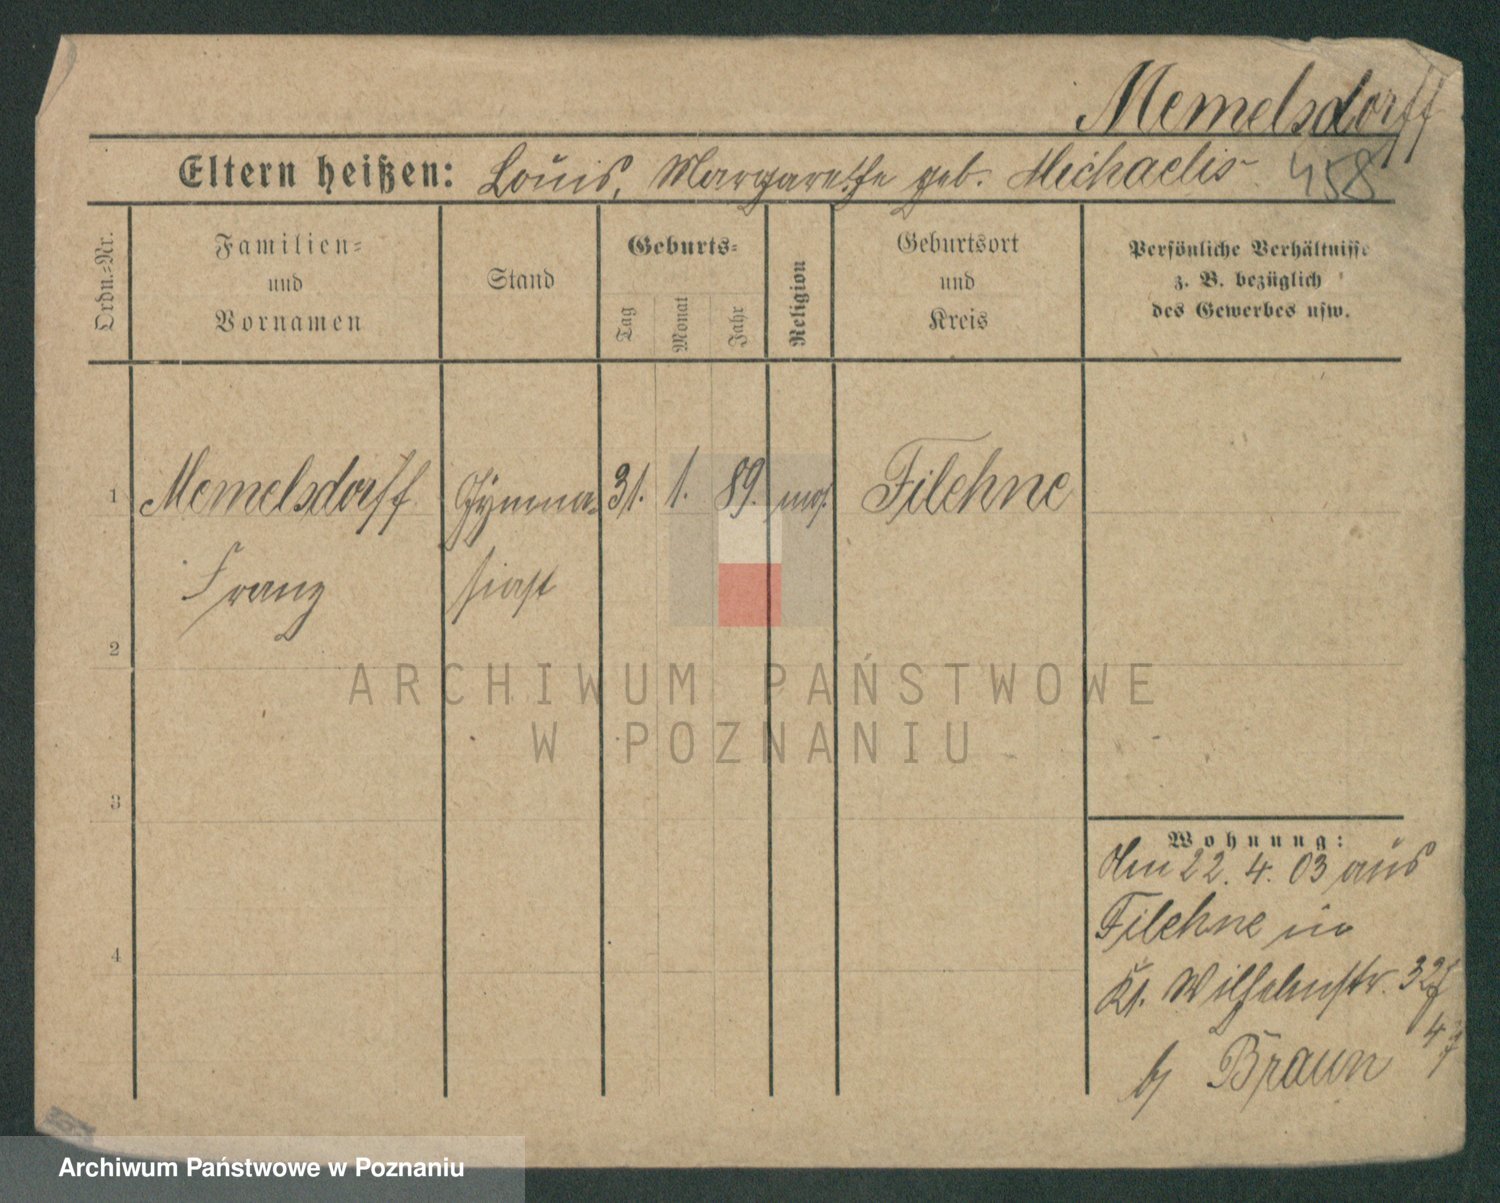 Memelsdorff
Eltern heißen: Louis, Margarethe geb. Michaelis 458
Ordn.=Nr.
Familien=
und
Vornamen
Stand
Geburts=
Tag
Monat
Jahr
Religion
Geburtsort
und
Kreis
Persönliche Verhältnisse
z. B. bezüglich
des Gewerbes usw.
1 Memelsdorff Gymna- 31. 1. 89. mos. Filehne
Franz siast
2
3
4
Wohnung:
Am 22. 4. 03 aus
Filehne in
Kl. Wilhelmstr. 32
b/ Braun
ARCHIWUM PAŃSTWOWE
W POZNANIU
Archiwum Państwowe w Poznaniu